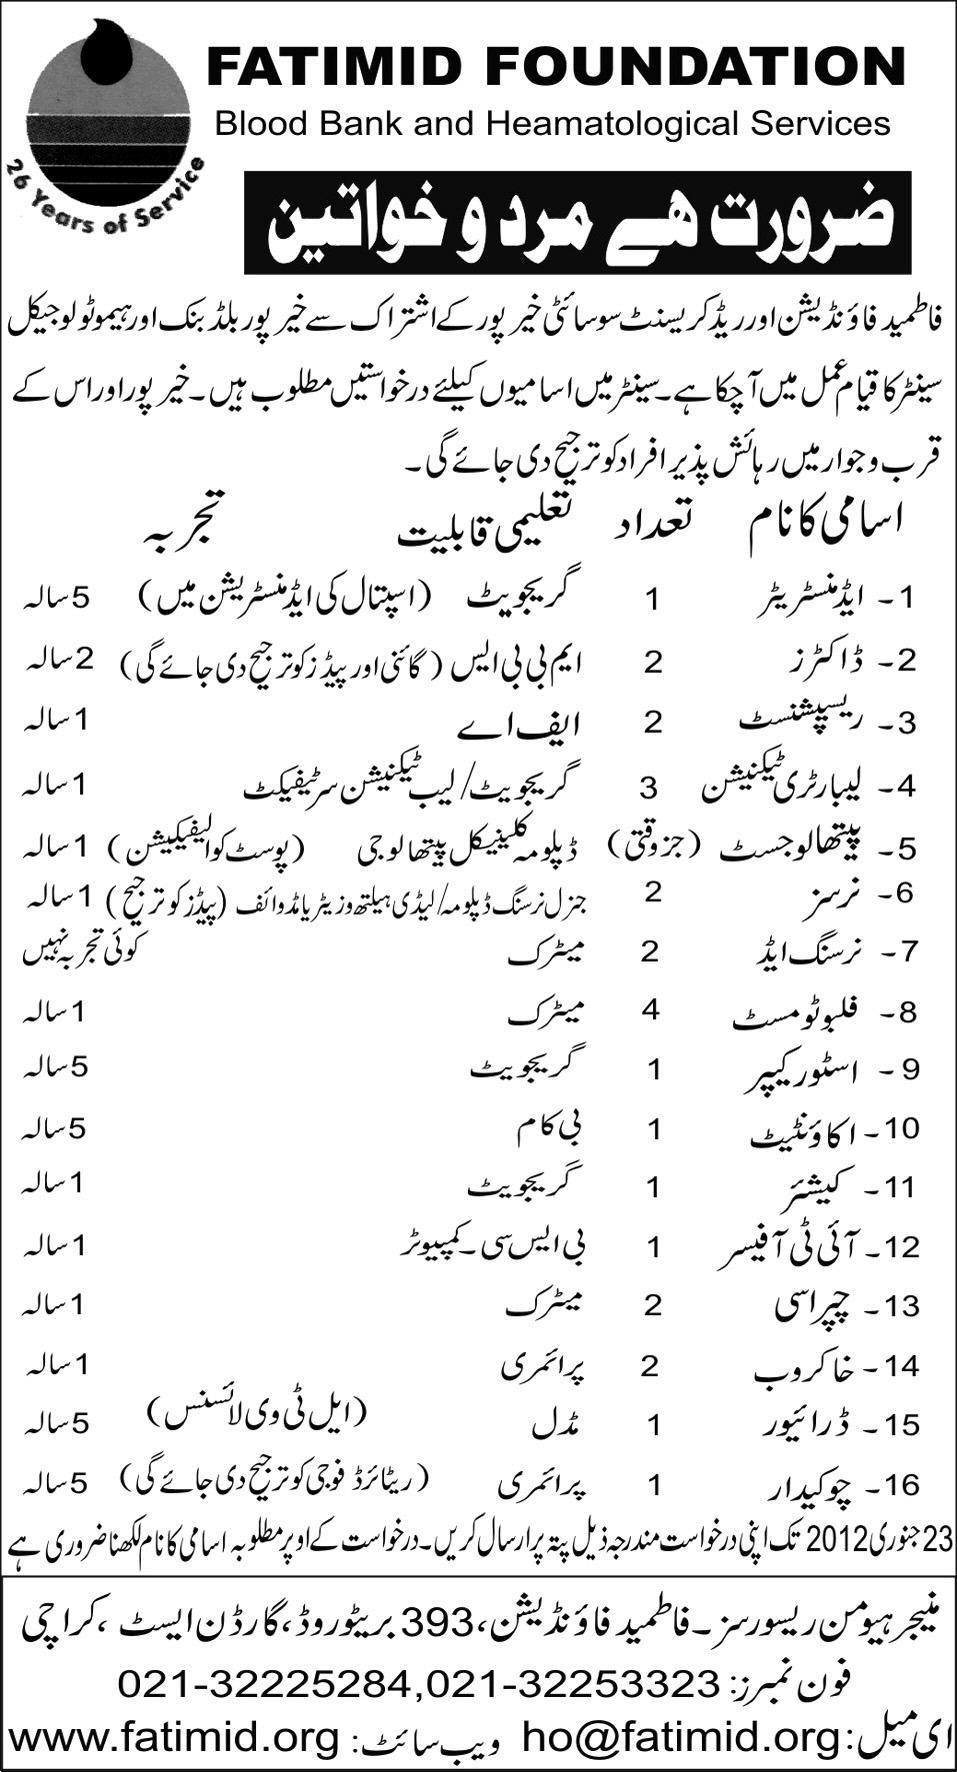 FATIMID FOUNDATION
Blood Bank and Heamatological Services
26 Years of Service
ضرورت ھے مرد و خواتین
فاطمید فاؤنڈیشن اور ریڈ کریسنٹ سوسائٹی خیرپور کے اشتراک سے خیرپور بلڈ بنک اور ہیموٹولوجیکل
سینٹر کا قیام عمل میں آ چکا ہے۔ سینٹر میں اسامیوں کیلئے درخواستیں مطلوب ہیں۔ خیرپور اور اس کے
قرب و جوار میں رہائش پذیر افراد کو ترجیح دی جائے گی۔
اسامی کا نام تعداد تعلیمی قابلیت تجربہ
1۔ ایڈمنسٹریٹر 1 گریجویٹ (اسپتال کی ایڈمنسٹریشن میں) 5 سالہ
2۔ ڈاکٹرز 2 ایم بی بی ایس (گائنی اور پیڈز کو ترجیح دی جائے گی) 2 سالہ
3۔ ریسپشنسٹ 2 ایف اے 1 سالہ
4۔ لیبارٹری ٹیکنیشن 3 گریجویٹ/لیب ٹیکنیشن سرٹیفیکٹ 1 سالہ
5۔ پیتھالوجسٹ (جزوقتی) ڈپلومہ کلینیکل پیتھالوجی (پوسٹ کوالیفیکیشن) 1 سالہ
6۔ نرسز 2 جنرل نرسنگ ڈپلومہ/لیڈی ہیلتھ وزیٹر یا مڈوائف (پیڈز کو ترجیح) 1 سالہ
7۔ نرسنگ ایڈ 2 میٹرک کوئی تجربہ نہیں
8۔ فلبوٹومسٹ 4 میٹرک 1 سالہ
9۔ اسٹور کیپر 1 گریجویٹ 5 سالہ
10۔ اکاؤنٹیٹ 1 بی کام 5 سالہ
11۔ کیشئر 1 گریجویٹ 1 سالہ
12۔ آئی ٹی آفیسر 1 بی ایس سی۔کمپیوٹر 1 سالہ
13۔ چپراسی 2 میٹرک 1 سالہ
14۔ خاکروب 2 پرائمری 1 سالہ
15۔ ڈرائیور 1 مڈل (ایل ٹی وی لائسنس) 5 سالہ
16۔ چوکیدار 1 پرائمری (ریٹائرڈ فوجی کو ترجیح دی جائے گی) 5 سالہ
23 جنوری 2012 تک اپنی درخواست مندرجہ ذیل پتہ پر ارسال کریں۔ درخواست کے اوپر مطلوبہ اسامی کا نام لکھنا ضروری ہے
منیجر ہیومن ریسورسز۔ فاطمید فاؤنڈیشن، 393 بریٹو روڈ، گارڈن ایسٹ، کراچی
فون نمبرز: 021-32225284,021-32253323
ای میل: ho@fatimid.org ویب سائٹ: www.fatimid.org